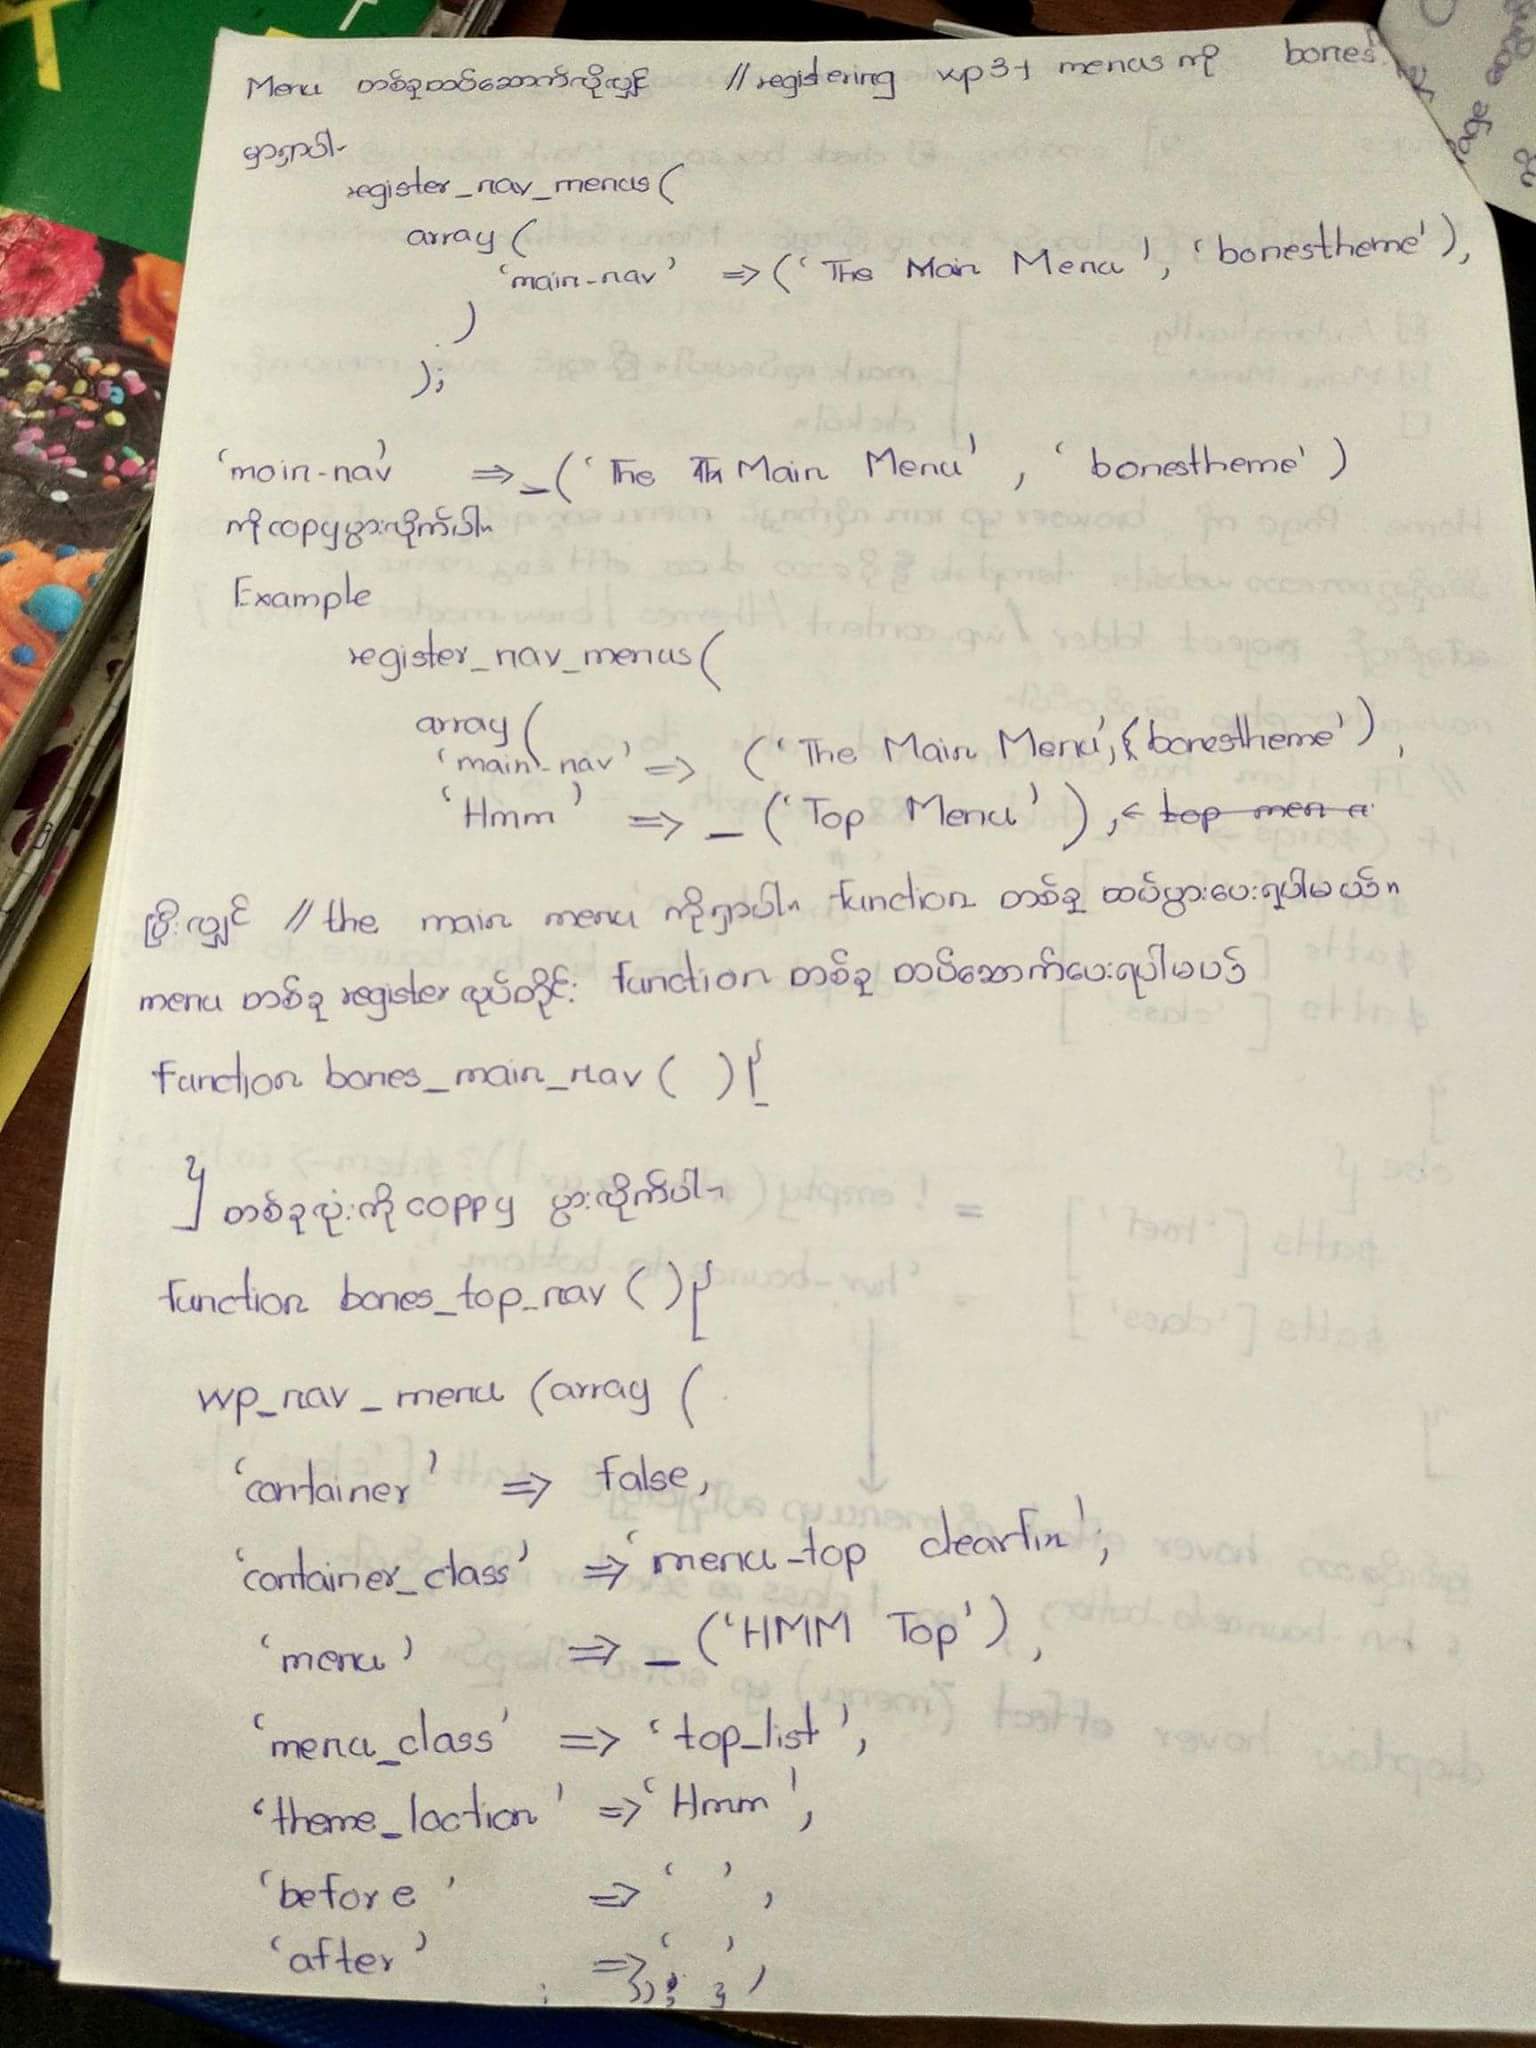 Menu တစ်ခုထပ်ဆောက်လိုလျှင် //registering wp3+ menus ကို bones
မှာရှာပါ-
register_nav_menus(
array(
'main-nav' => ('The Main Menu', 'bonestheme'),
)
);
'main-nav' => _('The Main Menu', 'bonestheme')
ကို copy ပွားလိုက်ပါ။
Example
register_nav_menus(
array(
'main-nav' => ('The Main Menu', 'bonestheme'),
'Hmm' => _('Top Menu'), < top menu
ပြီးလျှင် // the main menu ကိုရှာပါ။ function တစ်ခု ထပ်ပွားပေးရပါမယ်။
menu တစ်ခု register လုပ်တိုင်း function တစ်ခု ထပ်ဆောက်ပေးရပါမယ်
function bones_main_nav( ){
} တစ်ခုလုံးကို coppy ပွားလိုက်ပါ။
function bones_top_nav(){
wp_nav_menu (array (
'container' => false,
'container_class' => 'menu-top clearfix',
'menu' => _('HMM Top'),
'menu_class' => 'top_list',
'theme_loction' => 'Hmm',
'before' => ' ',
'after' => ' ',
page